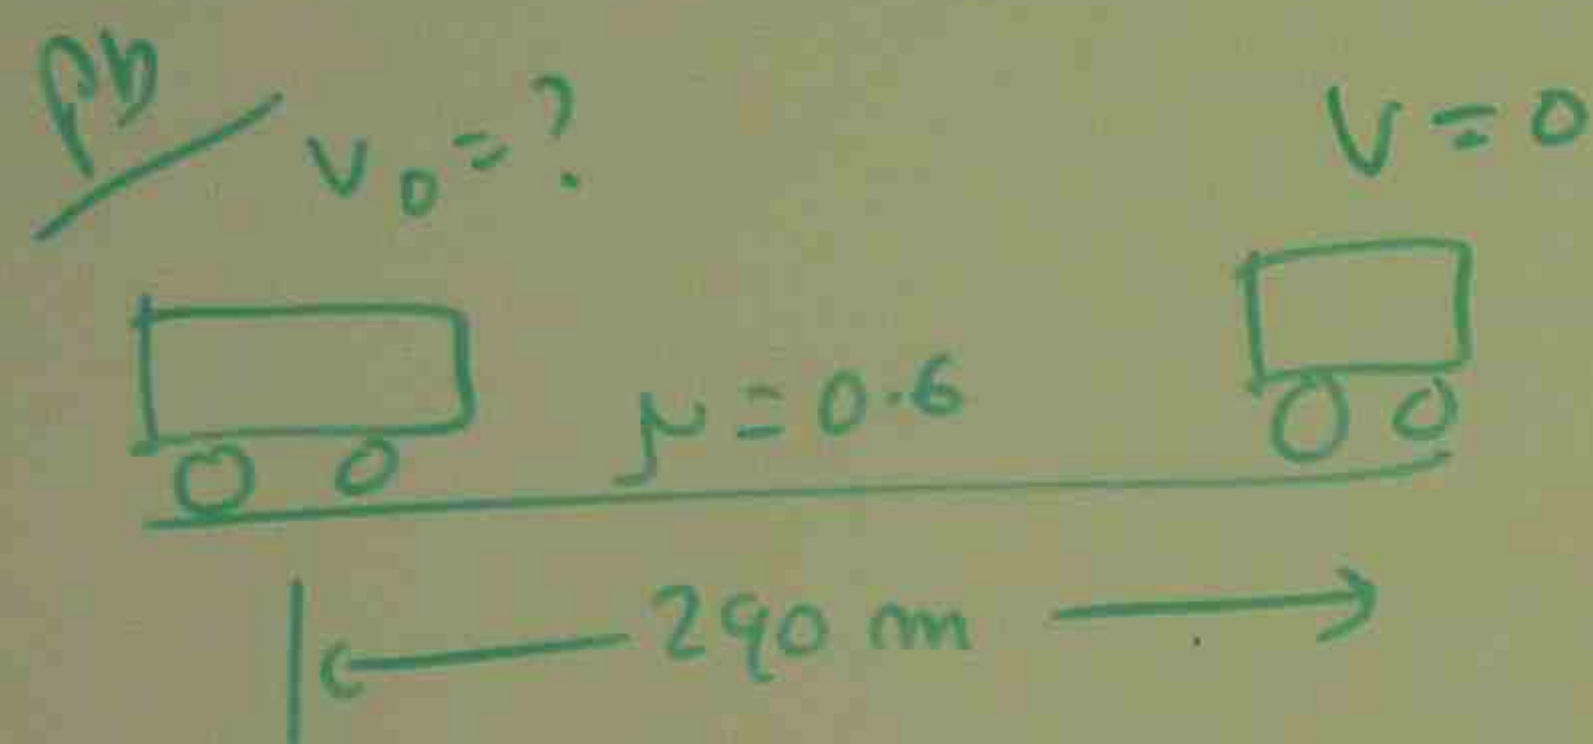 Pb
v₀ = ?
V = 0
μ = 0.6
290 m